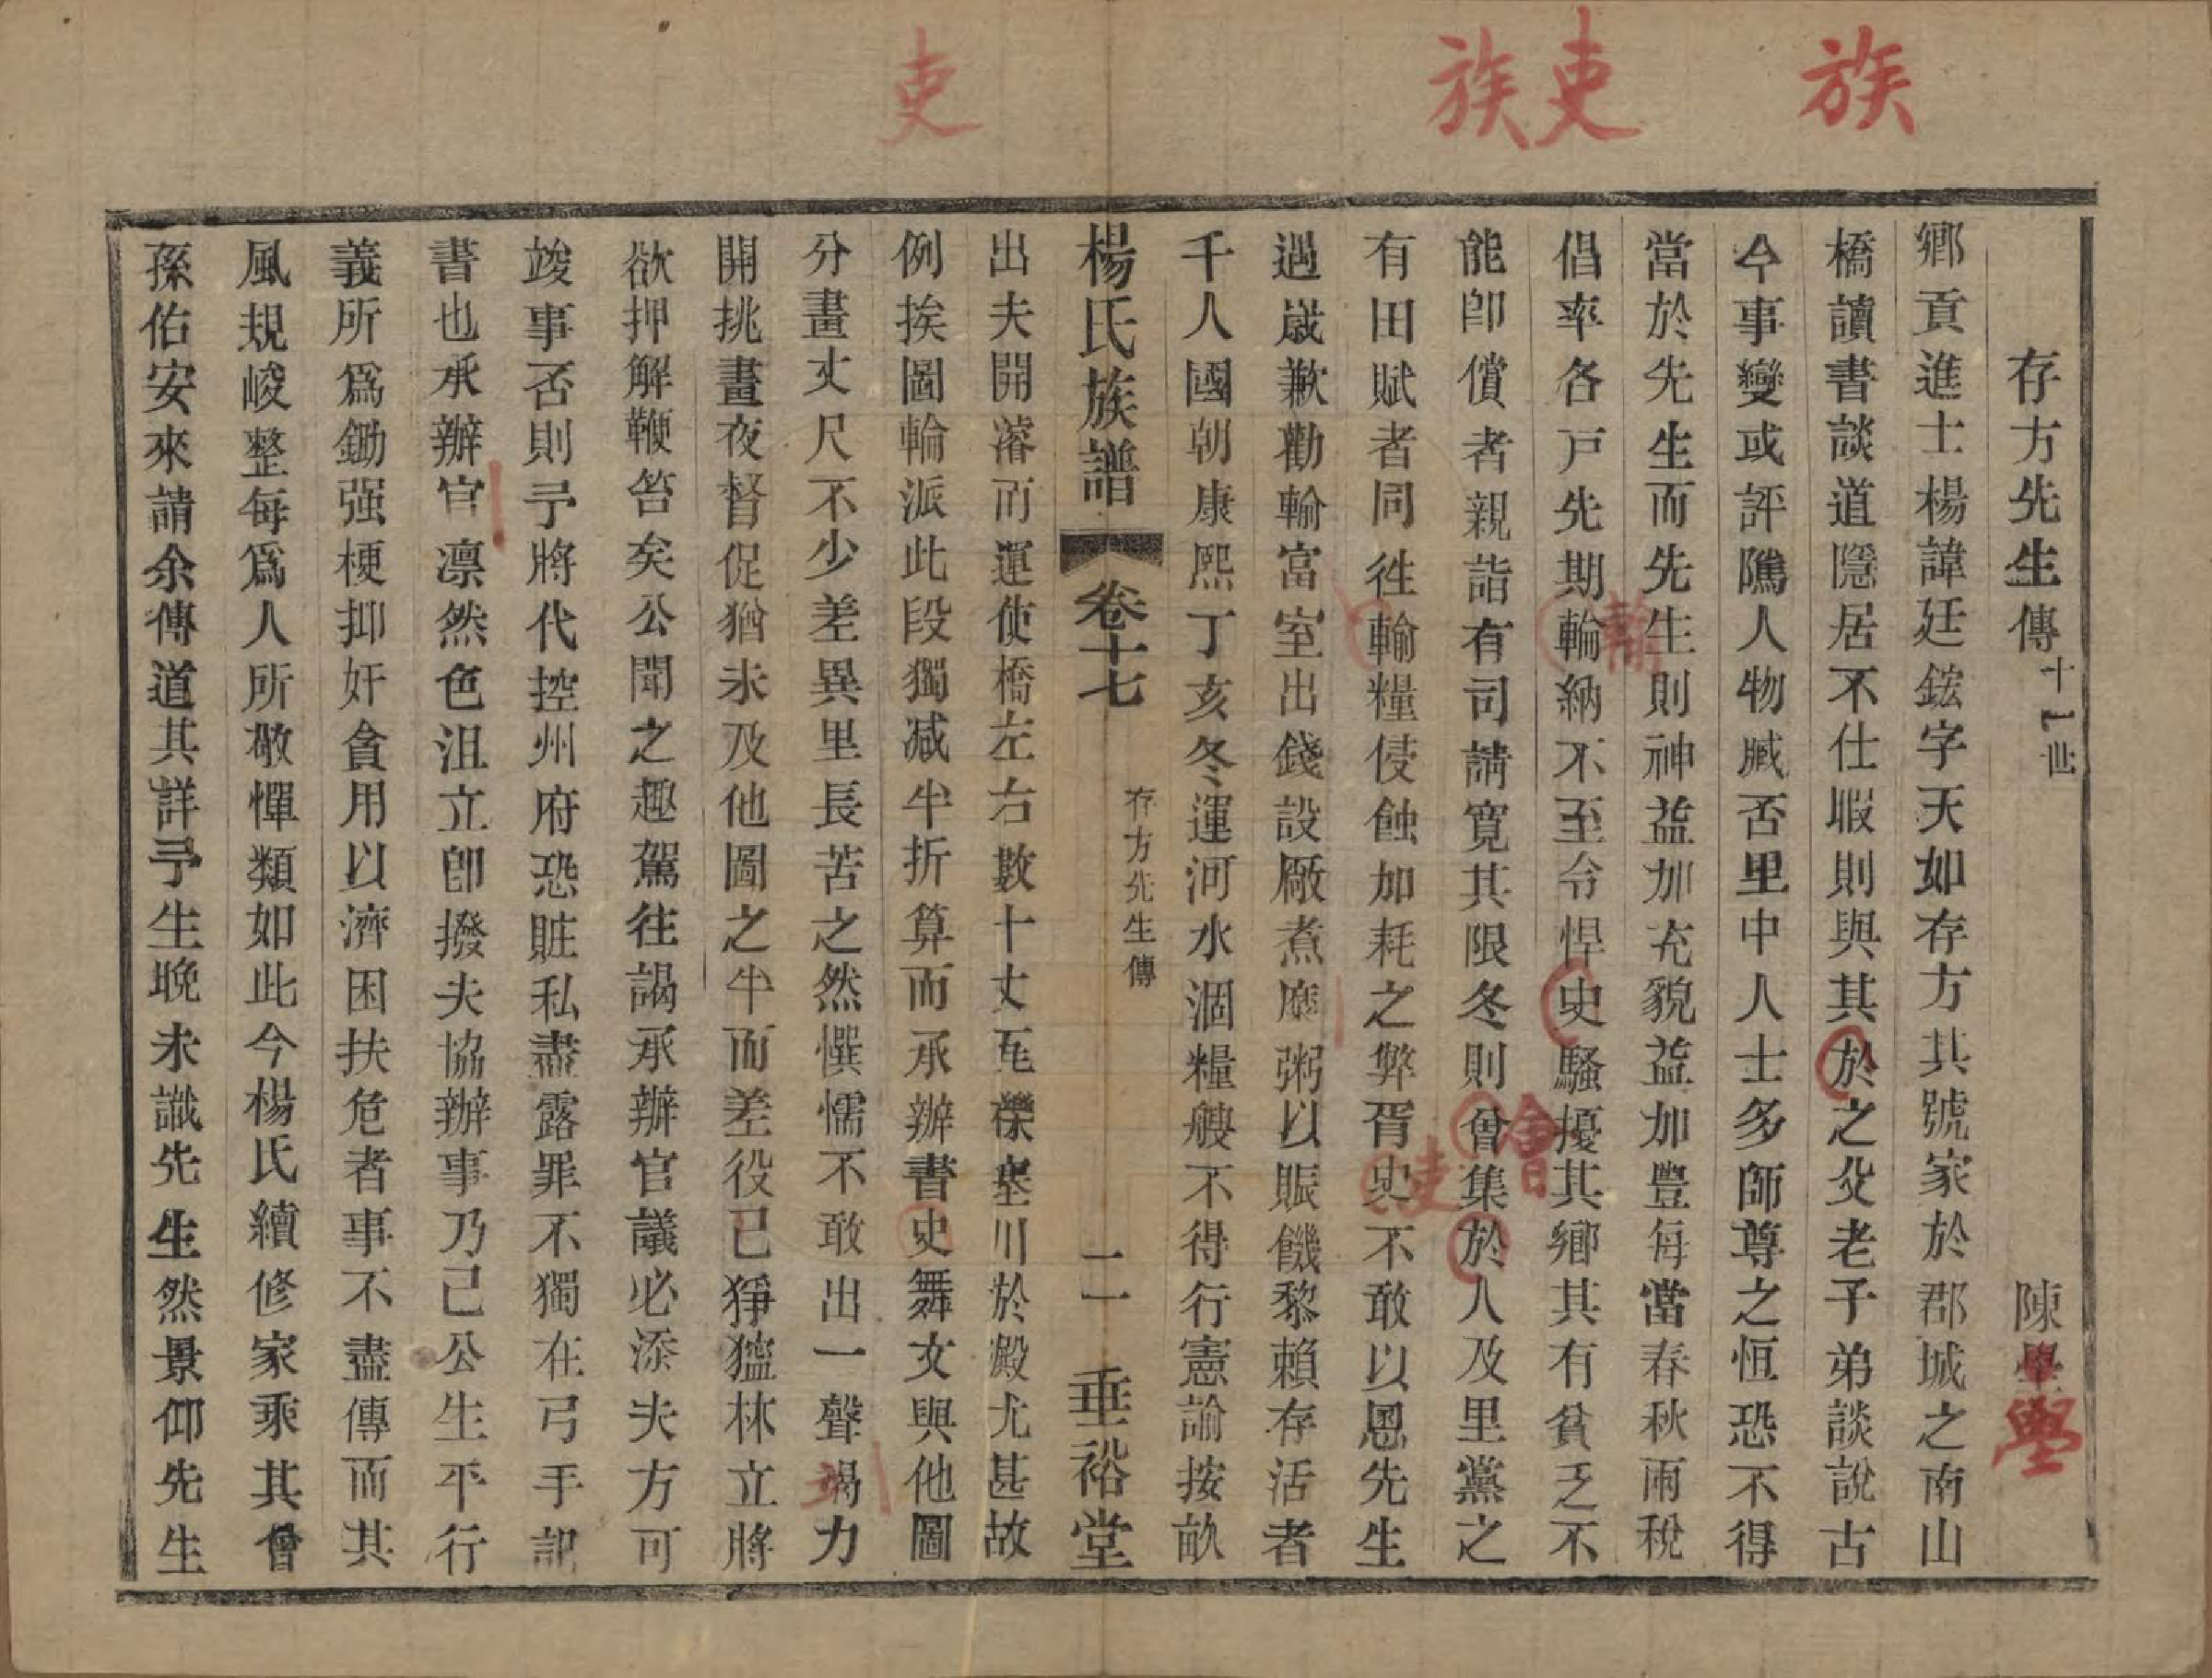 族
吏
族
吏
存方先生傳 十一世 陳壆 學
鄉貢進士楊諱廷鋐字天如存方其號家於郡城之南山
橋讀書談道隱居不仕暇則與其於之父老子弟談說古
今事變或評隲人物臧否里中人士多師尊之恒恐不得
當於先生而先生則神益加充貌益加豐每當春秋兩稅
倡率各戸先期輪納不至令悍史騷擾其鄉其有貧乏不
輸
能卽償者親詣有司請寬其限冬則曾集於人及里黨之
會
有田賦者同徃輸糧侵蝕加耗之弊胥史不敢以愚先生
吏
遇歲歉勸輸富室出錢設厰煮糜粥以賑饑黎賴存活者
千人國朝康熙丁亥冬運河水涸糧艘不得行憲諭按畝
楊氏族譜 卷十七 存方先生傳 二 垂裕堂
出夫開濬而運使橋左右數十丈瓦礫壘川於澱尤甚故
例挨圖輪派此段獨减半折算而承辦書史舞文與他圖
分畫丈尺不少差異里長苦之然懦不敢出一聲竭力
開挑晝夜督促猶未及他圖之半而差役已猙獰林立將
欲押解鞭笞矣公聞之趣駕往謁承辦官議必添夫方可
竣事否則予將代控州府恐賍私盡露罪不獨在弓手記
書也承辦官凛然色沮立卽撥夫協辦事乃己公生平行
義所爲鋤强梗抑奸貪用以濟困扶危者事不盡傳而其
風規峻整每爲人所敬憚類如此今楊氏續修家乘其曾
孫佑安來請余傳道其詳予生晚未識先生然景仰先生